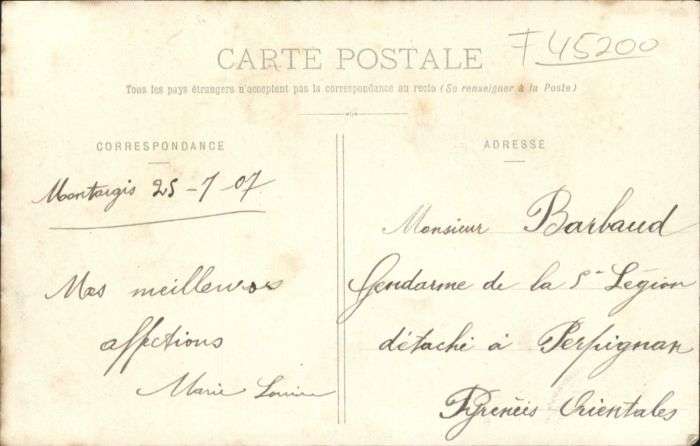 CARTE POSTALE
F 45200
Tous les pays étrangers n'acceptent pas la correspondance au recto (Se renseigner à la Poste)
CORRESPONDANCE
Montargis 25-7 07
Mes meilleures
affections
Marie Louise
ADRESSE
Monsieur Barbaud
Gendarme de la 5e Légion
détaché à Perpignan
Pyrénéis Orientales